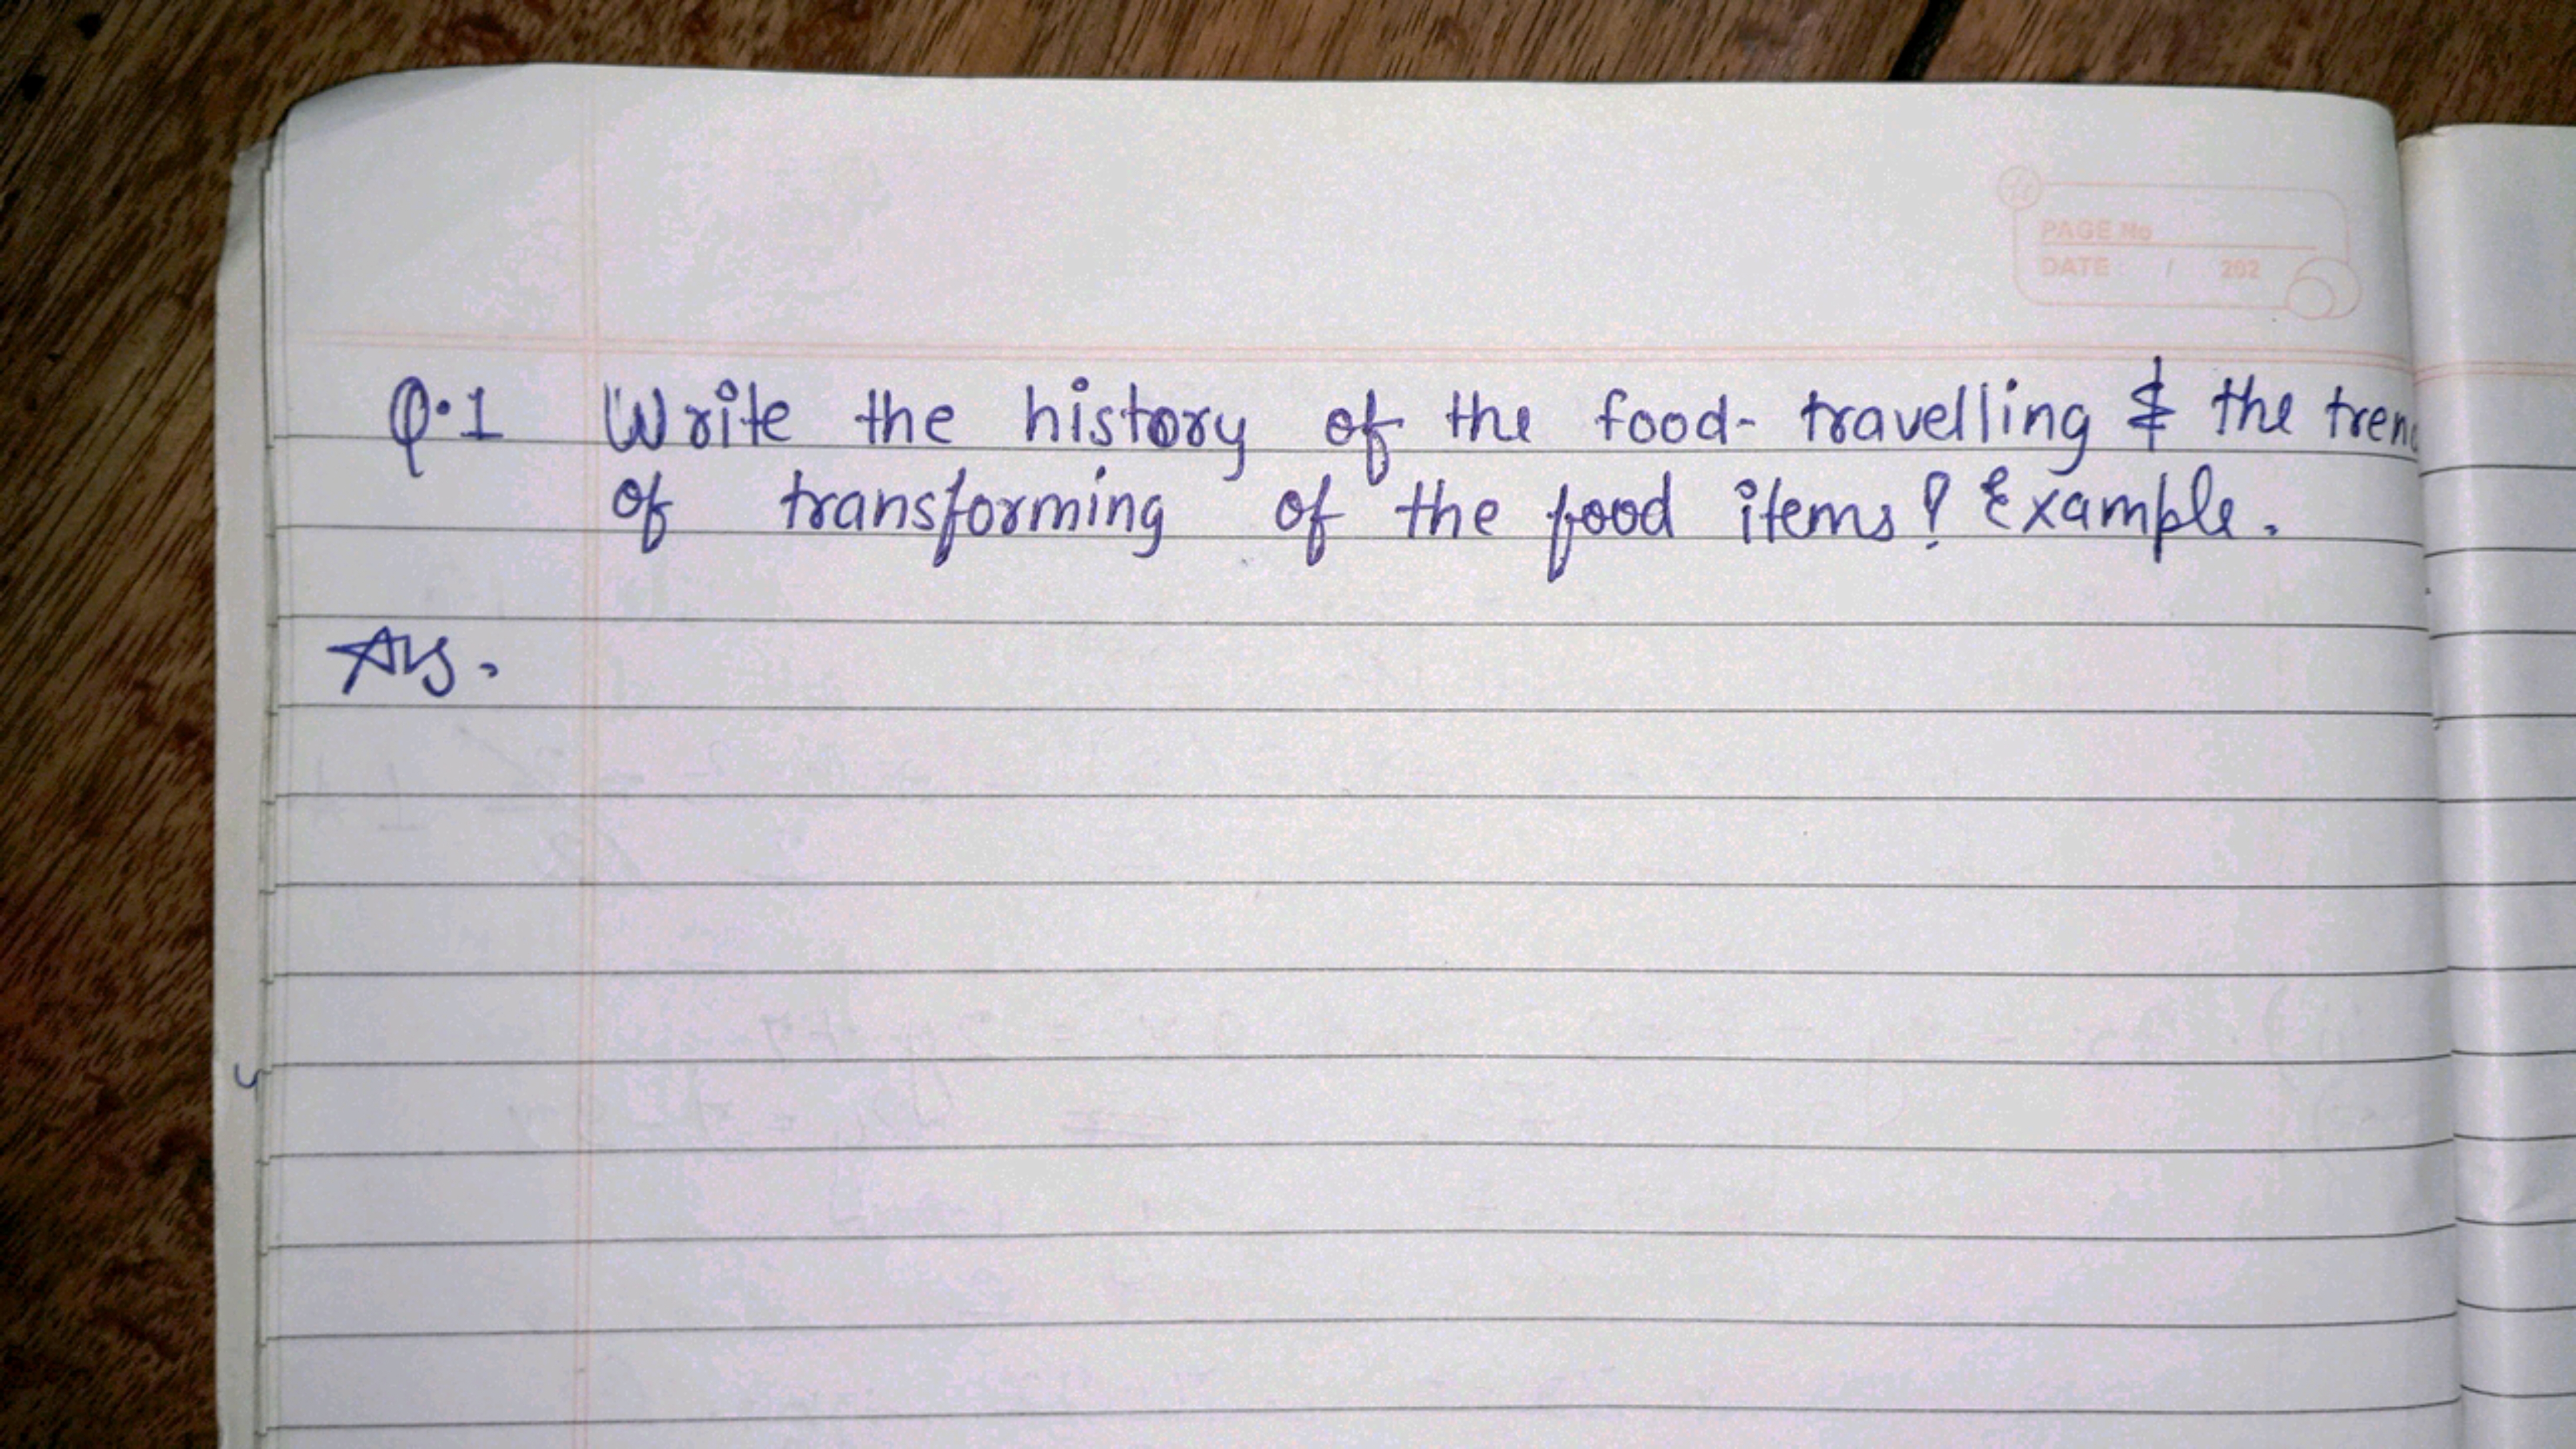 PAGE No
DATE: / 202
Q.1 Write the history of the food- travelling & the tren
of transforming of the food items? Example.
Ans.